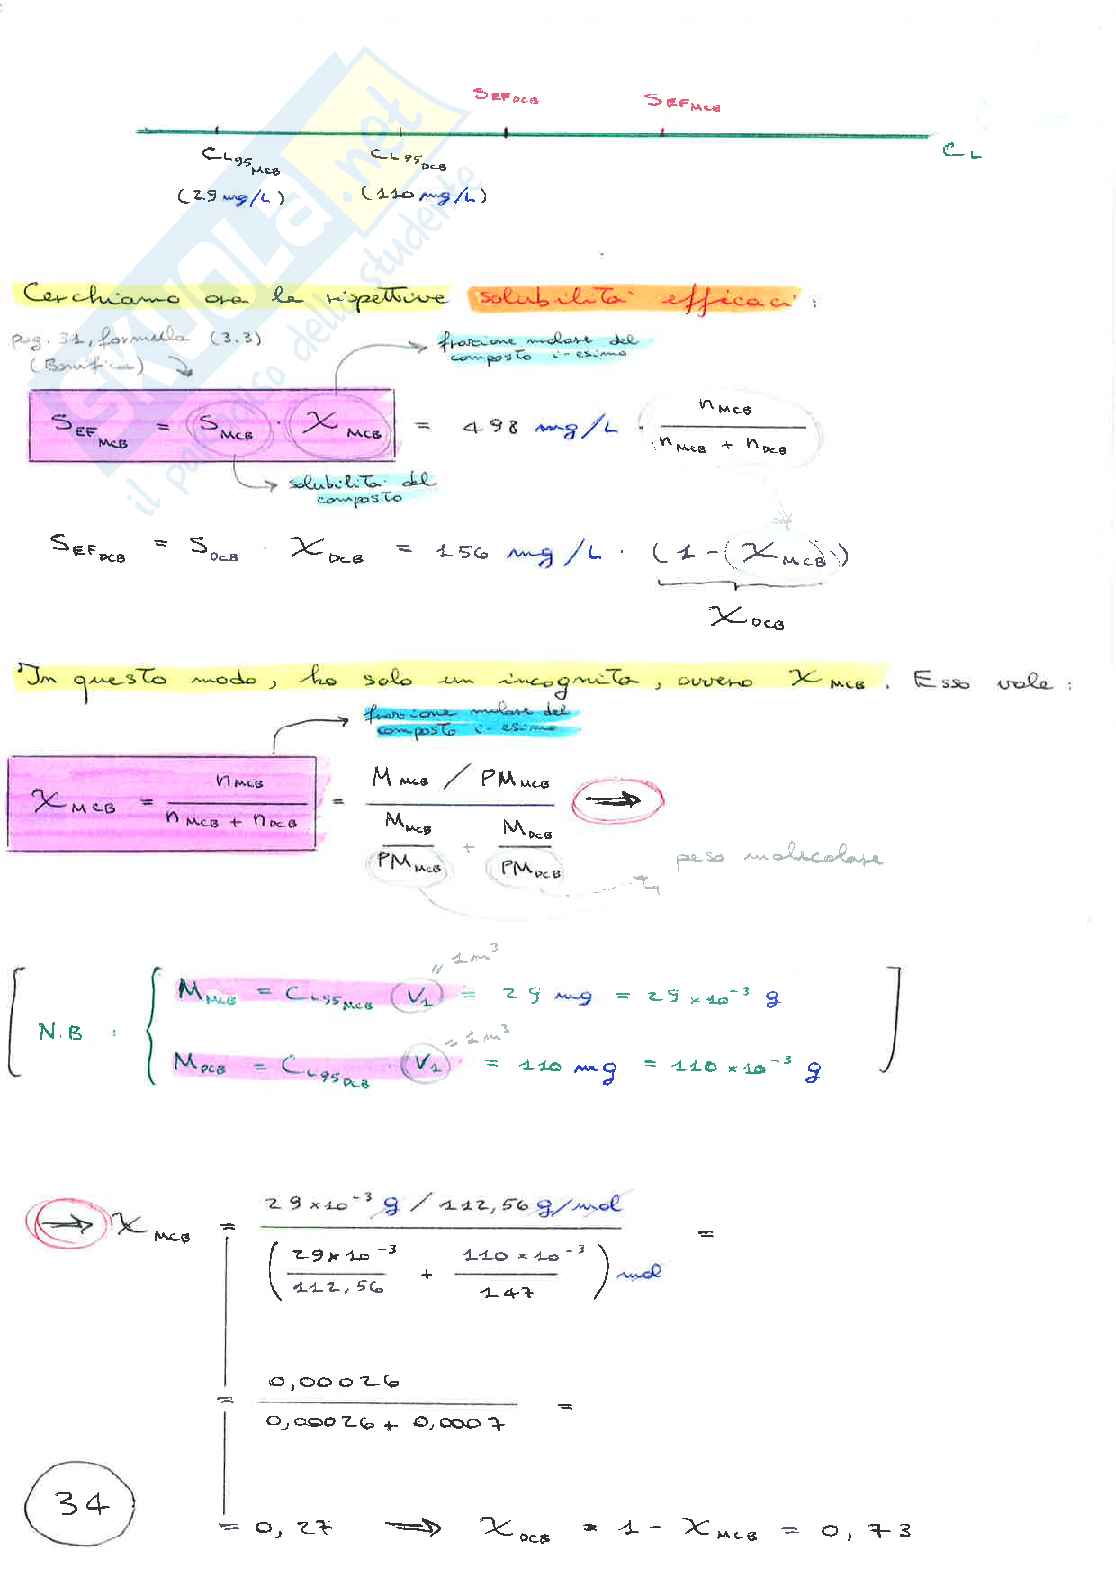 SEF DCB SEF MCB
CL
CL95 MCB CL95 DCB
(29 mg/L) (110 mg/L)
SKUOLA.net
il paradiso dello studente
Cerchiamo ora le rispettive solubilità efficaci:
pag. 31, formula (3.3)
(Bonifica)
frazione molare del
composto i-esimo
SEF MCB = S MCB · χ MCB = 498 mg/L · n MCB / (n MCB + n DCB)
solubilità del
composto
SEF DCB = S DCB · χ DCB = 156 mg/L · (1-(χ MCB))
χ DCB
In questo modo, ho solo un incognita, ovvero χ MCB. Esso vale:
frazione molare del
composto i-esimo
χ MCB = n MCB / (n MCB + n DCB) = (M MCB / PM MCB) / (M MCB / PM MCB + M DCB / PM DCB) →
peso molecolare
= 1 m³
N.B. : M MCB = CL95 MCB (V1) = 29 mg = 29×10⁻³ g
= 1 m³
M DCB = CL95 DCB · (V1) = 110 mg = 110×10⁻³ g
→ χ MCB = (29×10⁻³ g / 112,56 g/mol) / (29×10⁻³ / 112,56 + 110×10⁻³ / 147) mol =
= 0,00026 / (0,00026 + 0,0007) =
= 0,27 → χ DCB = 1 - χ MCB = 0,73
34